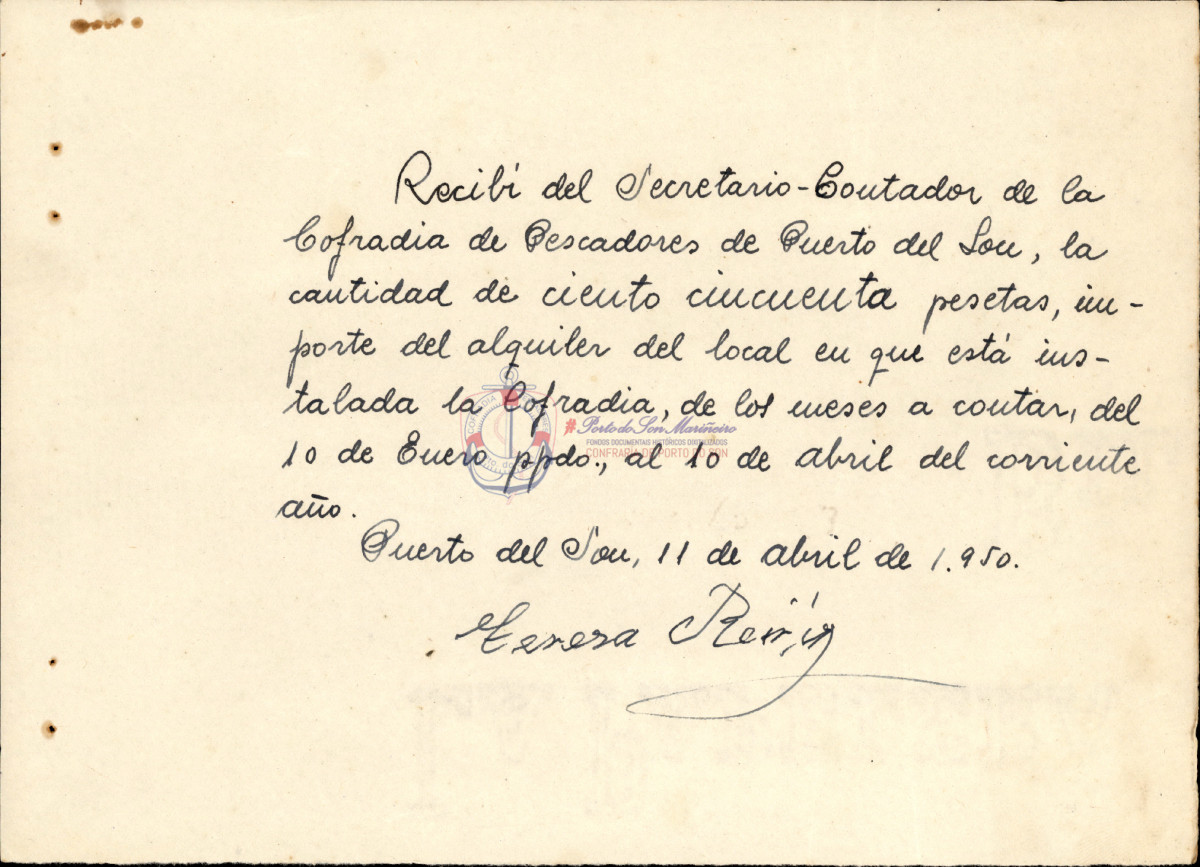 Recibí del Secretario-Contador de la
Cofradia de Pescadores de Puerto del Son, la
cantidad de ciento cincuenta pesetas, im-
porte del alquiler del local en que está ins-
talada la Cofradia, de los meses a contar, del
10 de Enero ppdo., al 10 de abril del corriente
año.
Puerto del Son, 11 de abril de 1.950.
Teresa
#Porto do Son Mariñeiro
FONDOS DOCUMENTAIS HISTÓRICOS DIXITALIZADOS
CONFRARÍA DE PORTO DO SON